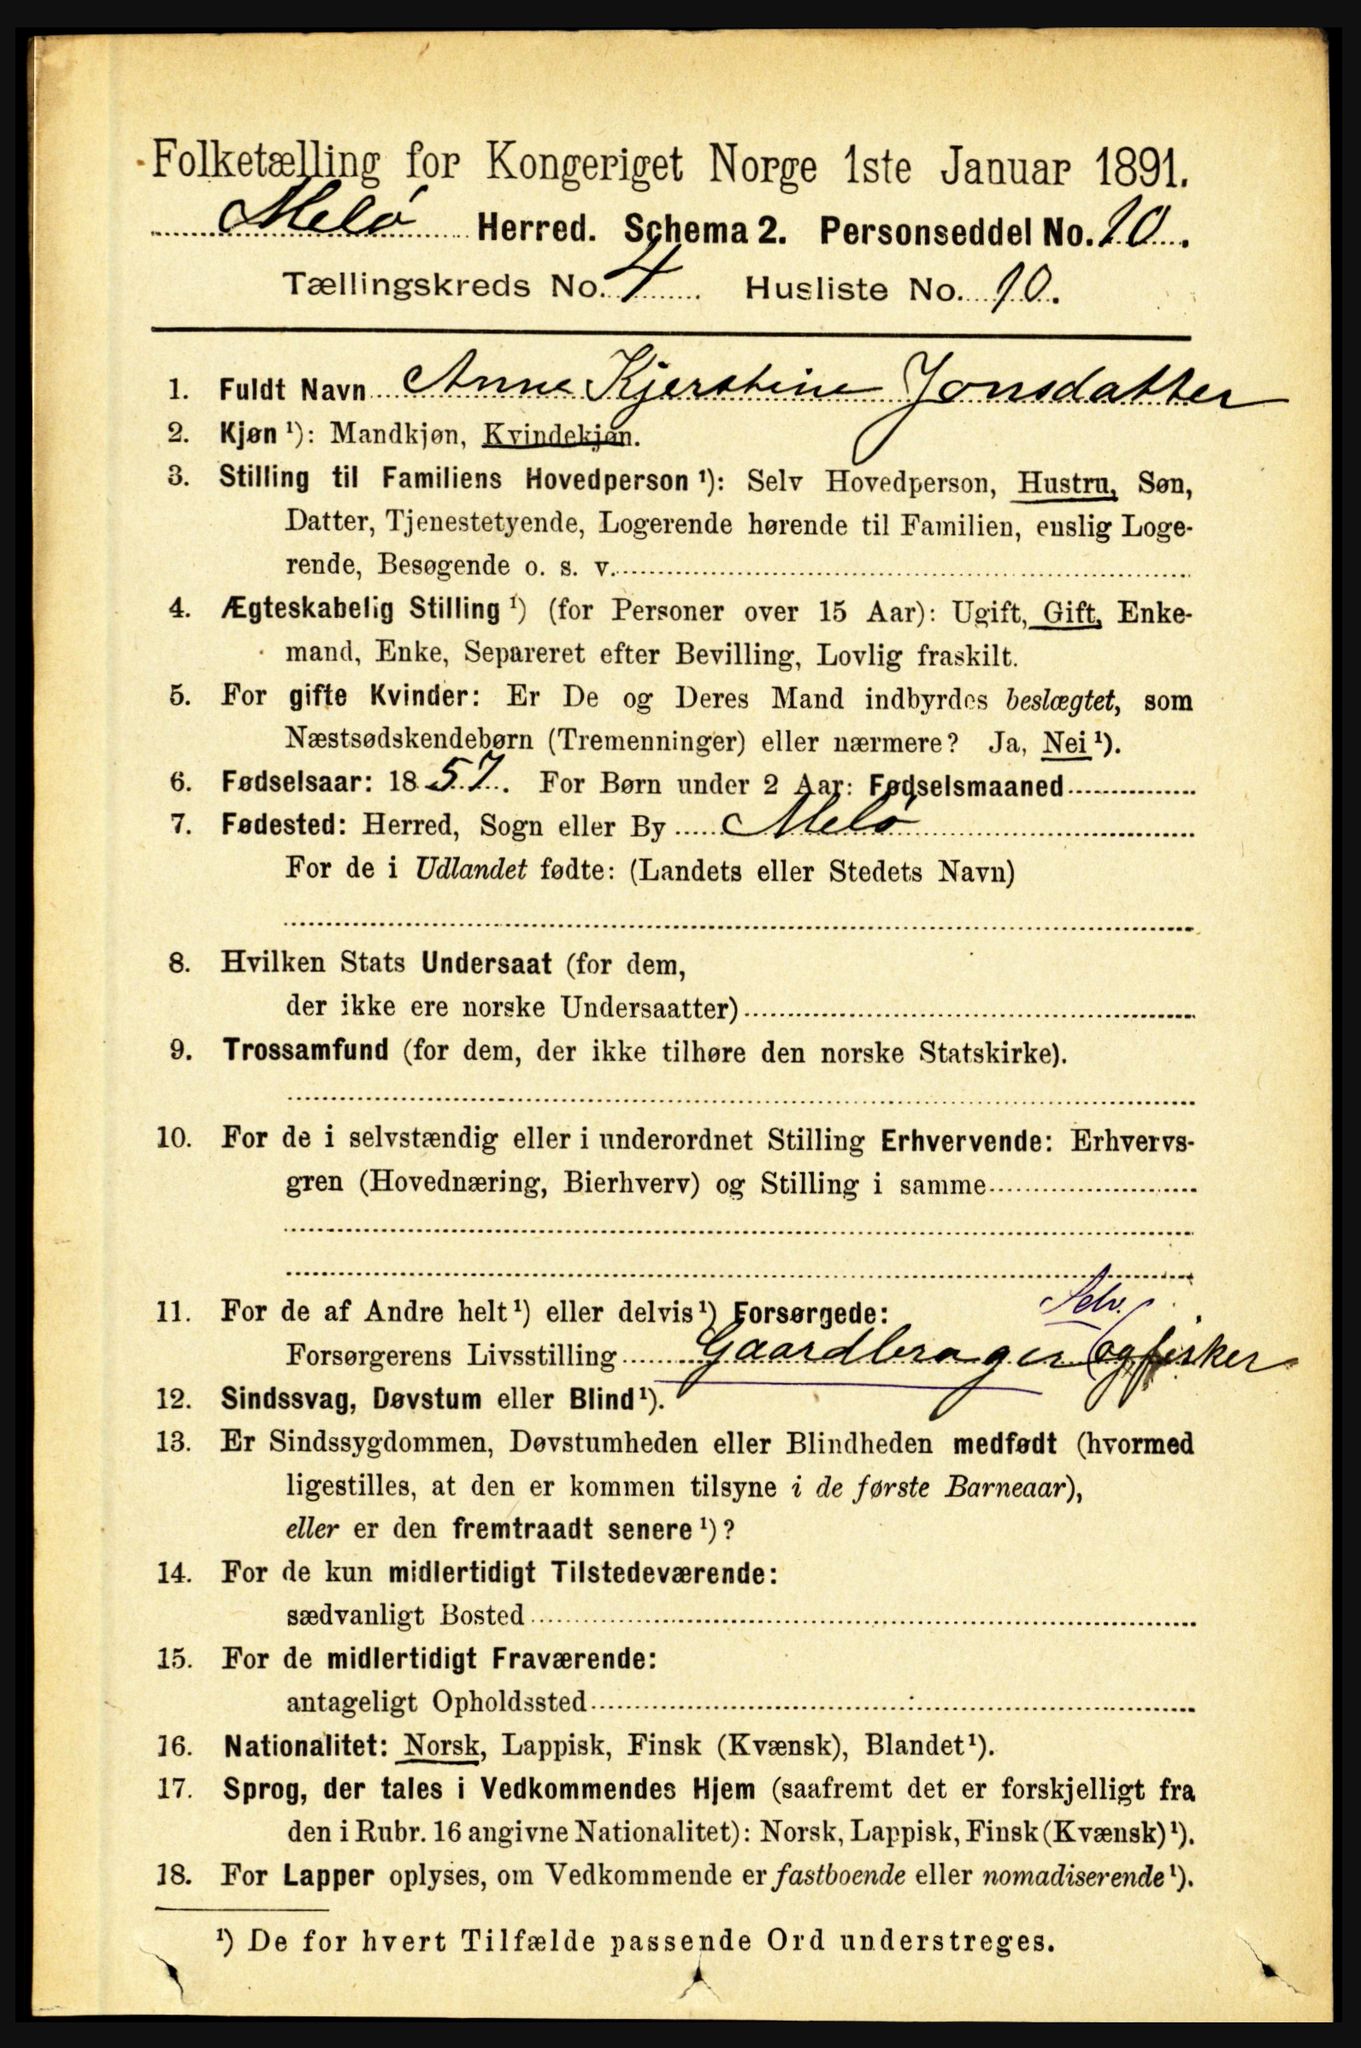 Folketælling for Kongeriget Norge 1ste Januar 1891.
Melø Herred. Schema 2. Personseddel No. 10.
Tællingskreds No. 4 Husliste No. 10.
1. Fuldt Navn Anne Kjerstine Jonsdatter
2. Kjøn ¹): Mandkjøn, Kvindekjøn.
3. Stilling til Familiens Hovedperson ¹): Selv Hovedperson, Hustru, Søn,
Datter, Tjenestetyende, Logerende hørende til Familien, enslig Loge-
rende, Besøgende o. s. v.
4. Ægteskabelig Stilling ¹) (for Personer over 15 Aar): Ugift, Gift, Enke-
mand, Enke, Separeret efter Bevilling, Lovlig fraskilt.
5. For gifte Kvinder: Er De og Deres Mand indbyrdes beslægtet, som
Næstsødskendebørn (Tremenninger) eller nærmere? Ja, Nei ¹).
6. Fødselsaar: 1857. For Børn under 2 Aar: Fødselsmaaned
7. Fødested: Herred, Sogn eller By Melø
For de i Udlandet fødte: (Landets eller Stedets Navn)
8. Hvilken Stats Undersaat (for dem,
der ikke ere norske Undersaatter)
9. Trossamfund (for dem, der ikke tilhøre den norske Statskirke).
10. For de i selvstændig eller i underordnet Stilling Erhvervende: Erhvervs-
gren (Hovednæring, Bierhverv) og Stilling i samme
11. For de af Andre helt ¹) eller delvis ¹) Forsørgede: Selv.
Forsørgerens Livsstilling Gaardbruger og fisker
12. Sindssvag, Døvstum eller Blind ¹).
13. Er Sindssygdommen, Døvstumheden eller Blindheden medfødt (hvormed
ligestilles, at den er kommen tilsyne i de første Barneaar),
eller er den fremtraadt senere ¹)?
14. For de kun midlertidigt Tilstedeværende:
sædvanligt Bosted
15. For de midlertidigt Fraværende:
antageligt Opholdssted
16. Nationalitet: Norsk, Lappisk, Finsk (Kvænsk), Blandet ¹).
17. Sprog, der tales i Vedkommendes Hjem (saafremt det er forskjelligt fra
den i Rubr. 16 angivne Nationalitet): Norsk, Lappisk, Finsk (Kvænsk) ¹).
18. For Lapper oplyses, om Vedkommende er fastboende eller nomadiserende ¹).
¹) De for hvert Tilfælde passende Ord understreges.